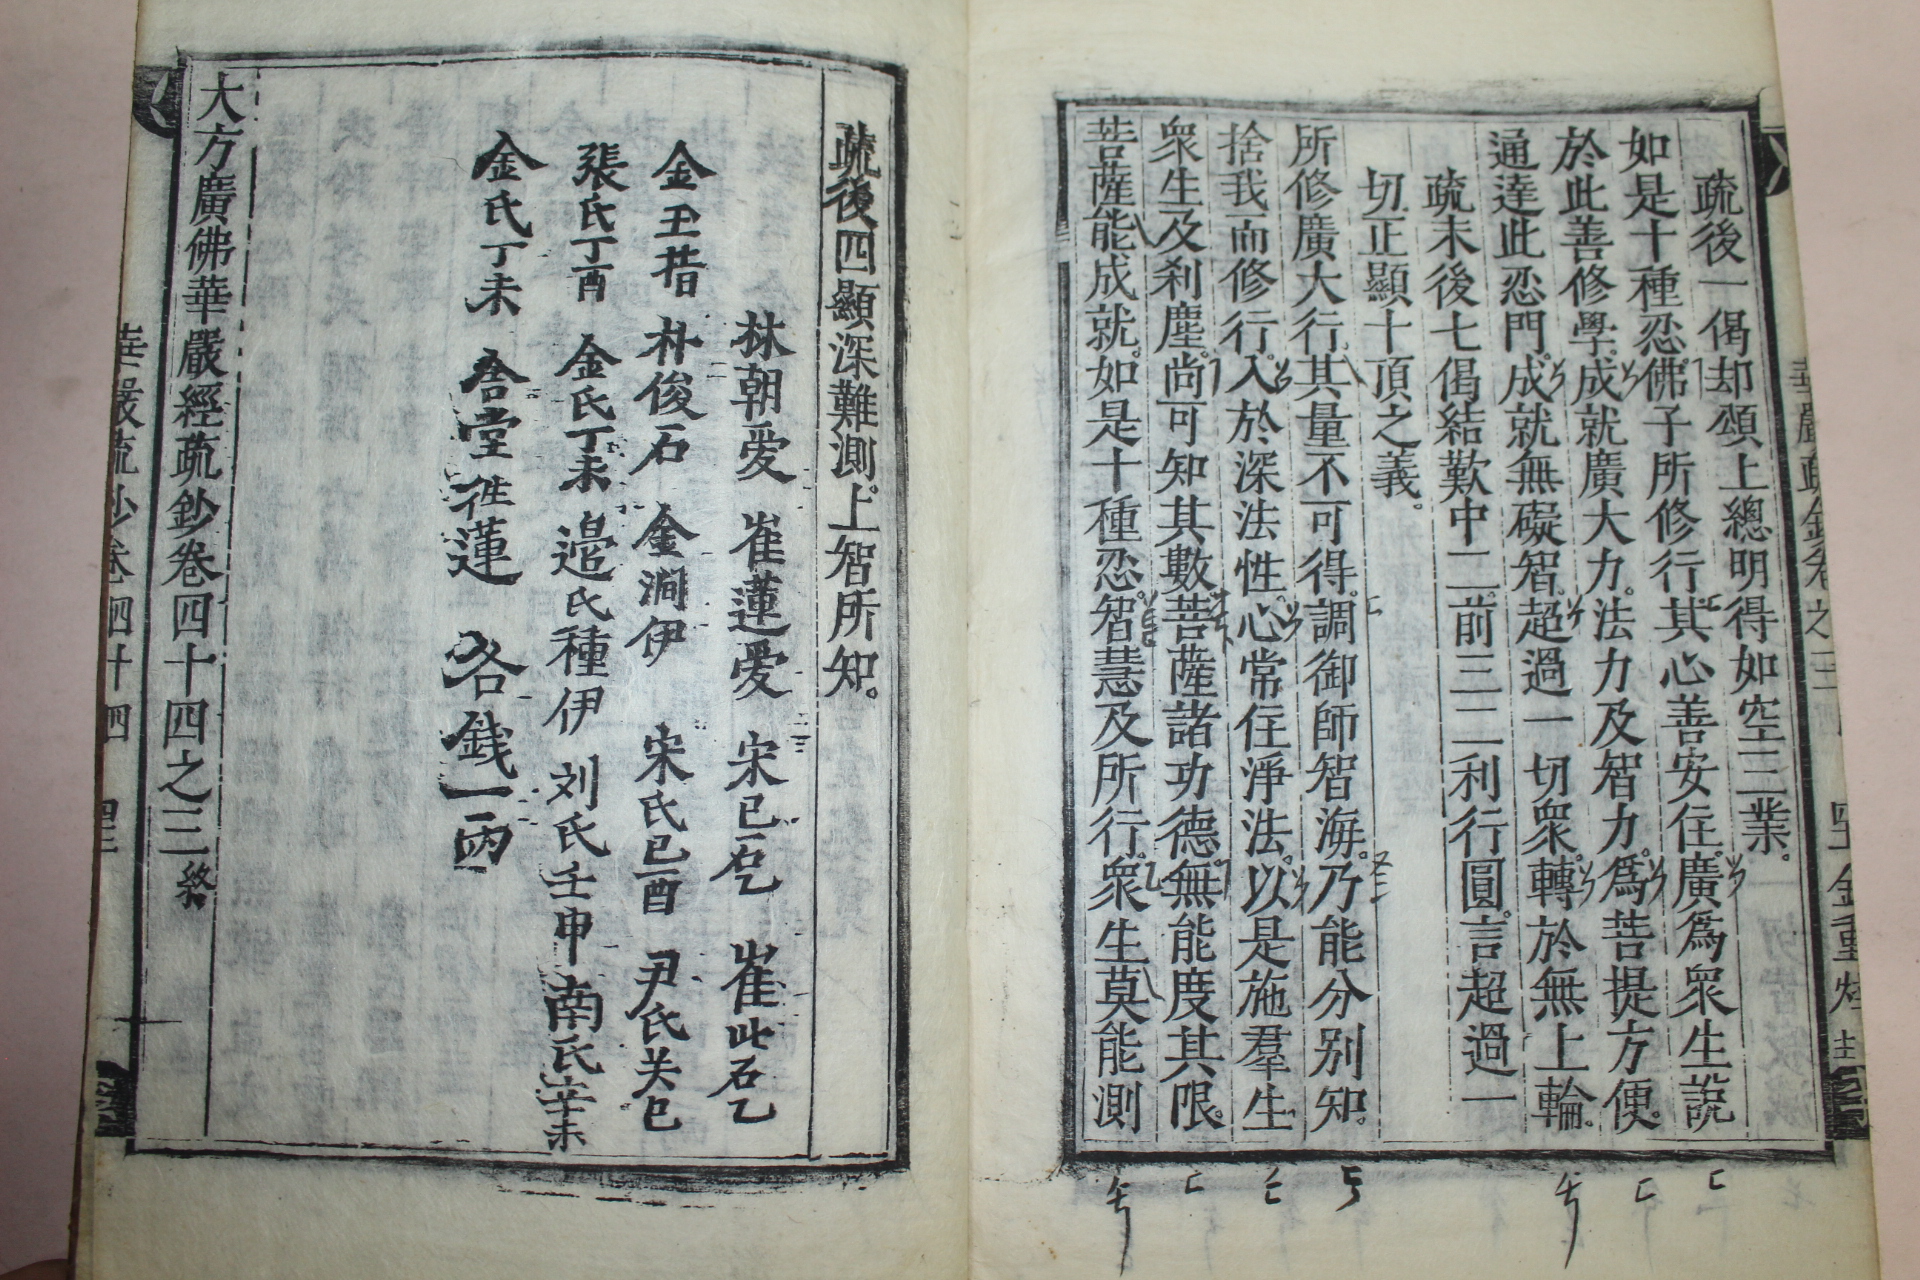 疏後一偈却頌上總明得如空三業。
如是十種忍。佛子所修行。其心善安住。廣爲衆生說
於此善修學。成就廣大力。法力及智力。爲菩提方便。
通達此忍門。成就無礙智。超過一切衆。轉於無上輪。
疏末後七偈結歎中二。前三二利行圓。言超過一
切正顯十頂之義。
所修廣大行。其量不可得。調御師智海。乃能分別知。
捨我而修行。入於深法性。心常住淨法。以是施羣生
衆生及刹塵。尚可知其數。菩薩諸功德。無能度其限。
菩薩能成就。如是十種忍。智慧及所行。衆生莫能測
疏後四顯深難測。上智所知。
林朝愛 崔蓮愛 宋已乭 崔此石乙
金王昔 朴俊石 金潤伊 宋氏已酉 尹氏关已
張氏丁酉 金氏丁未 邉氏種伊 刘氏壬申 南氏辛未
金氏丁未 各錢一兩
大方廣佛華嚴經疏鈔卷四十四之三終